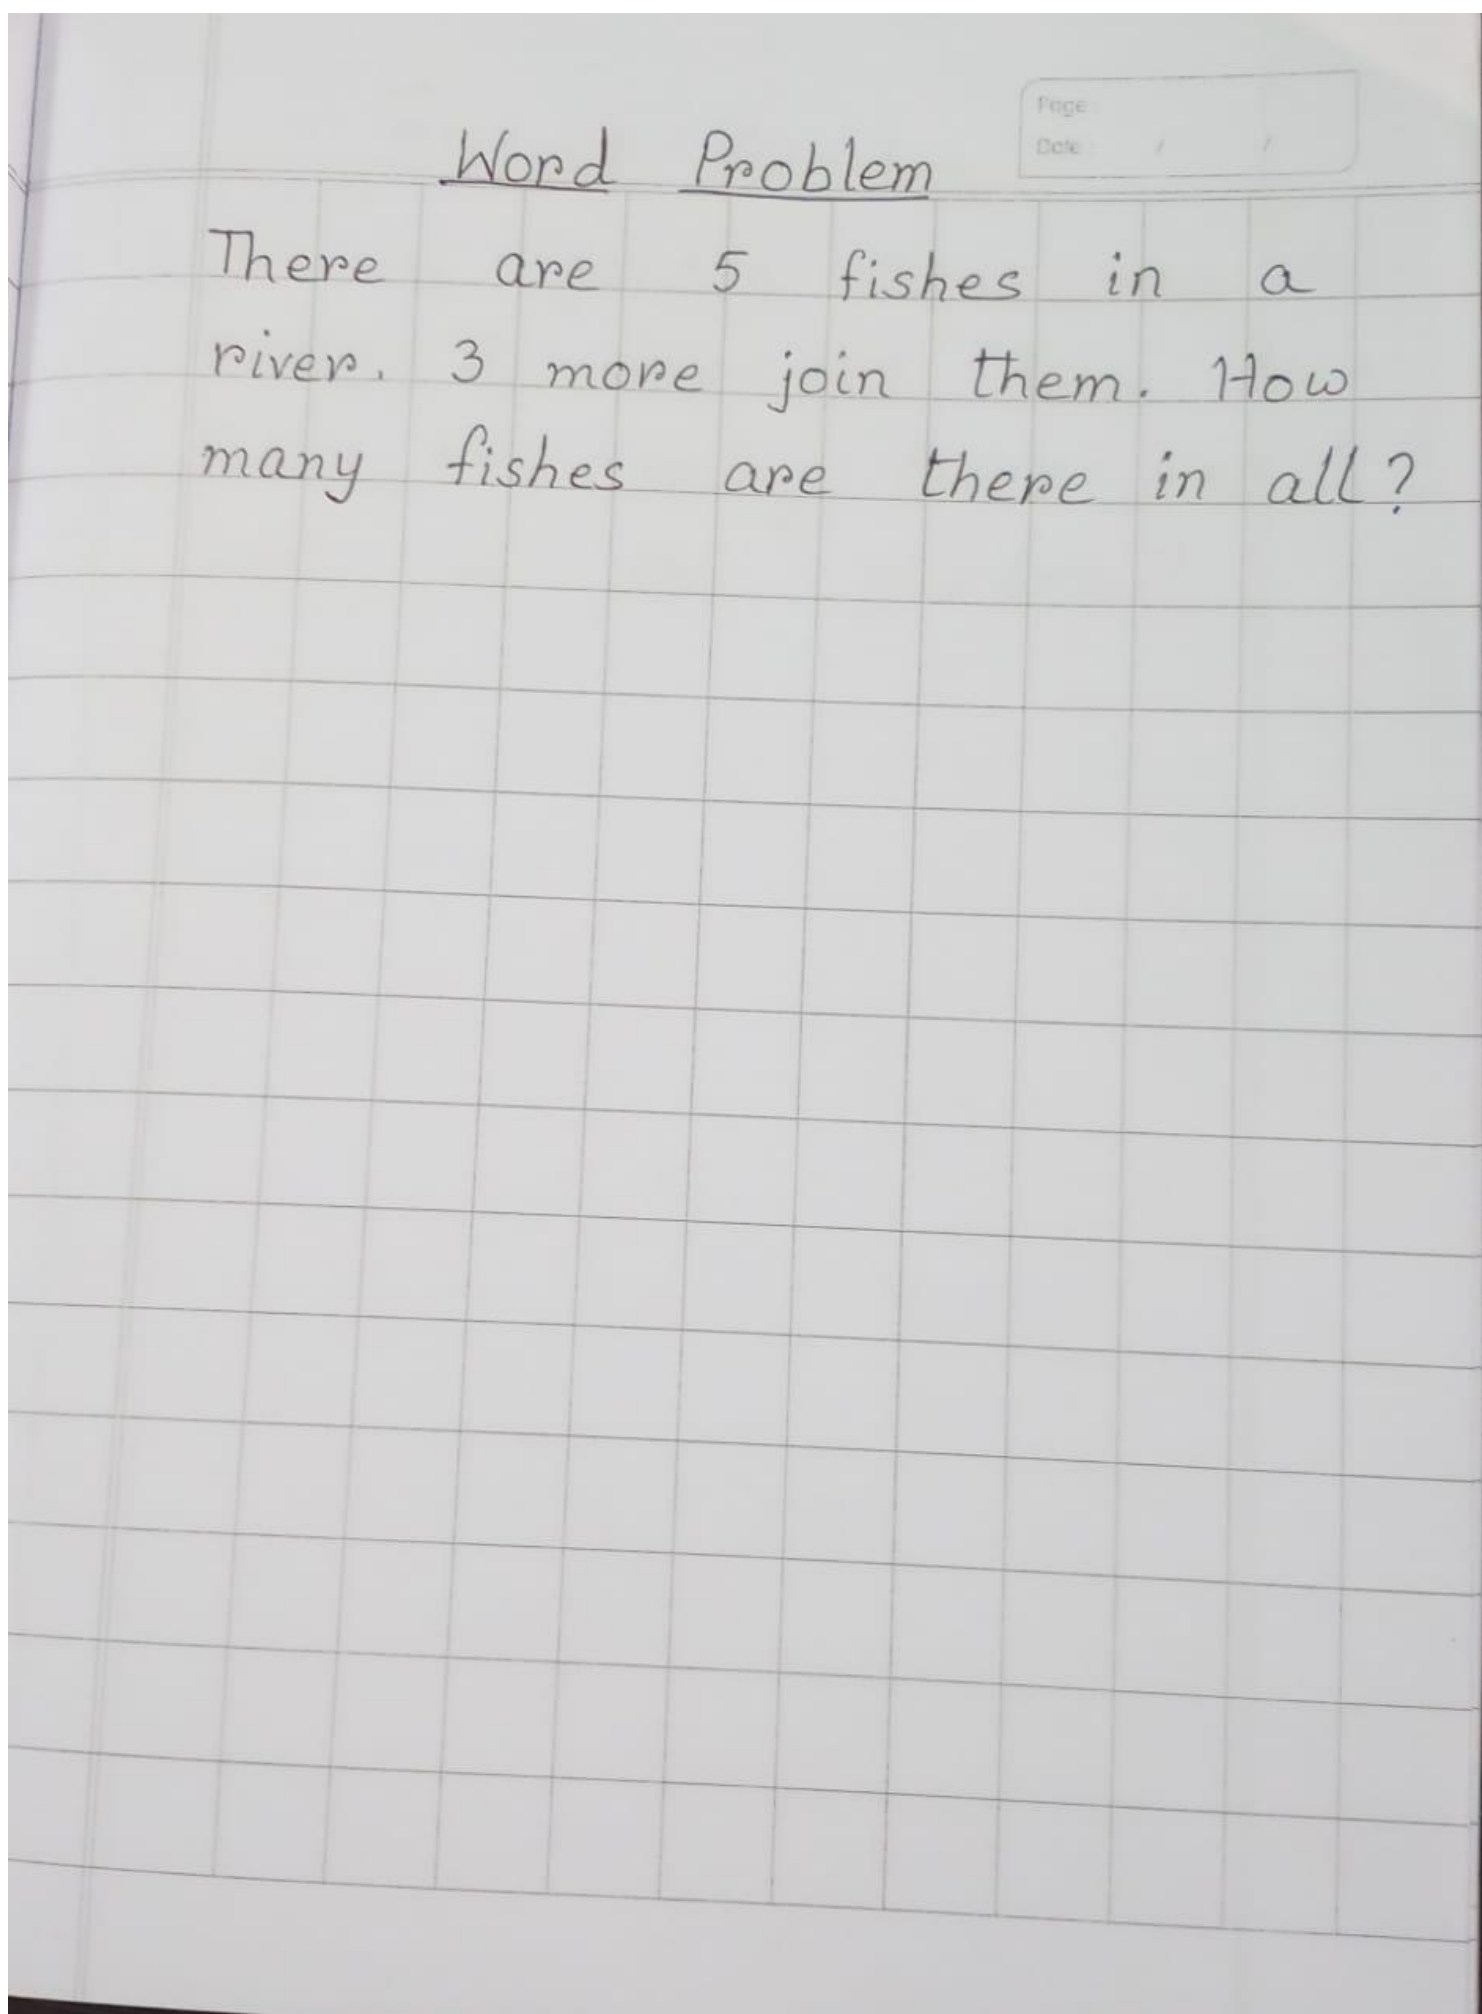 Page:
Date: / /
Word Problem
There are 5 fishes in a
river. 3 more join them. How
many fishes are there in all?